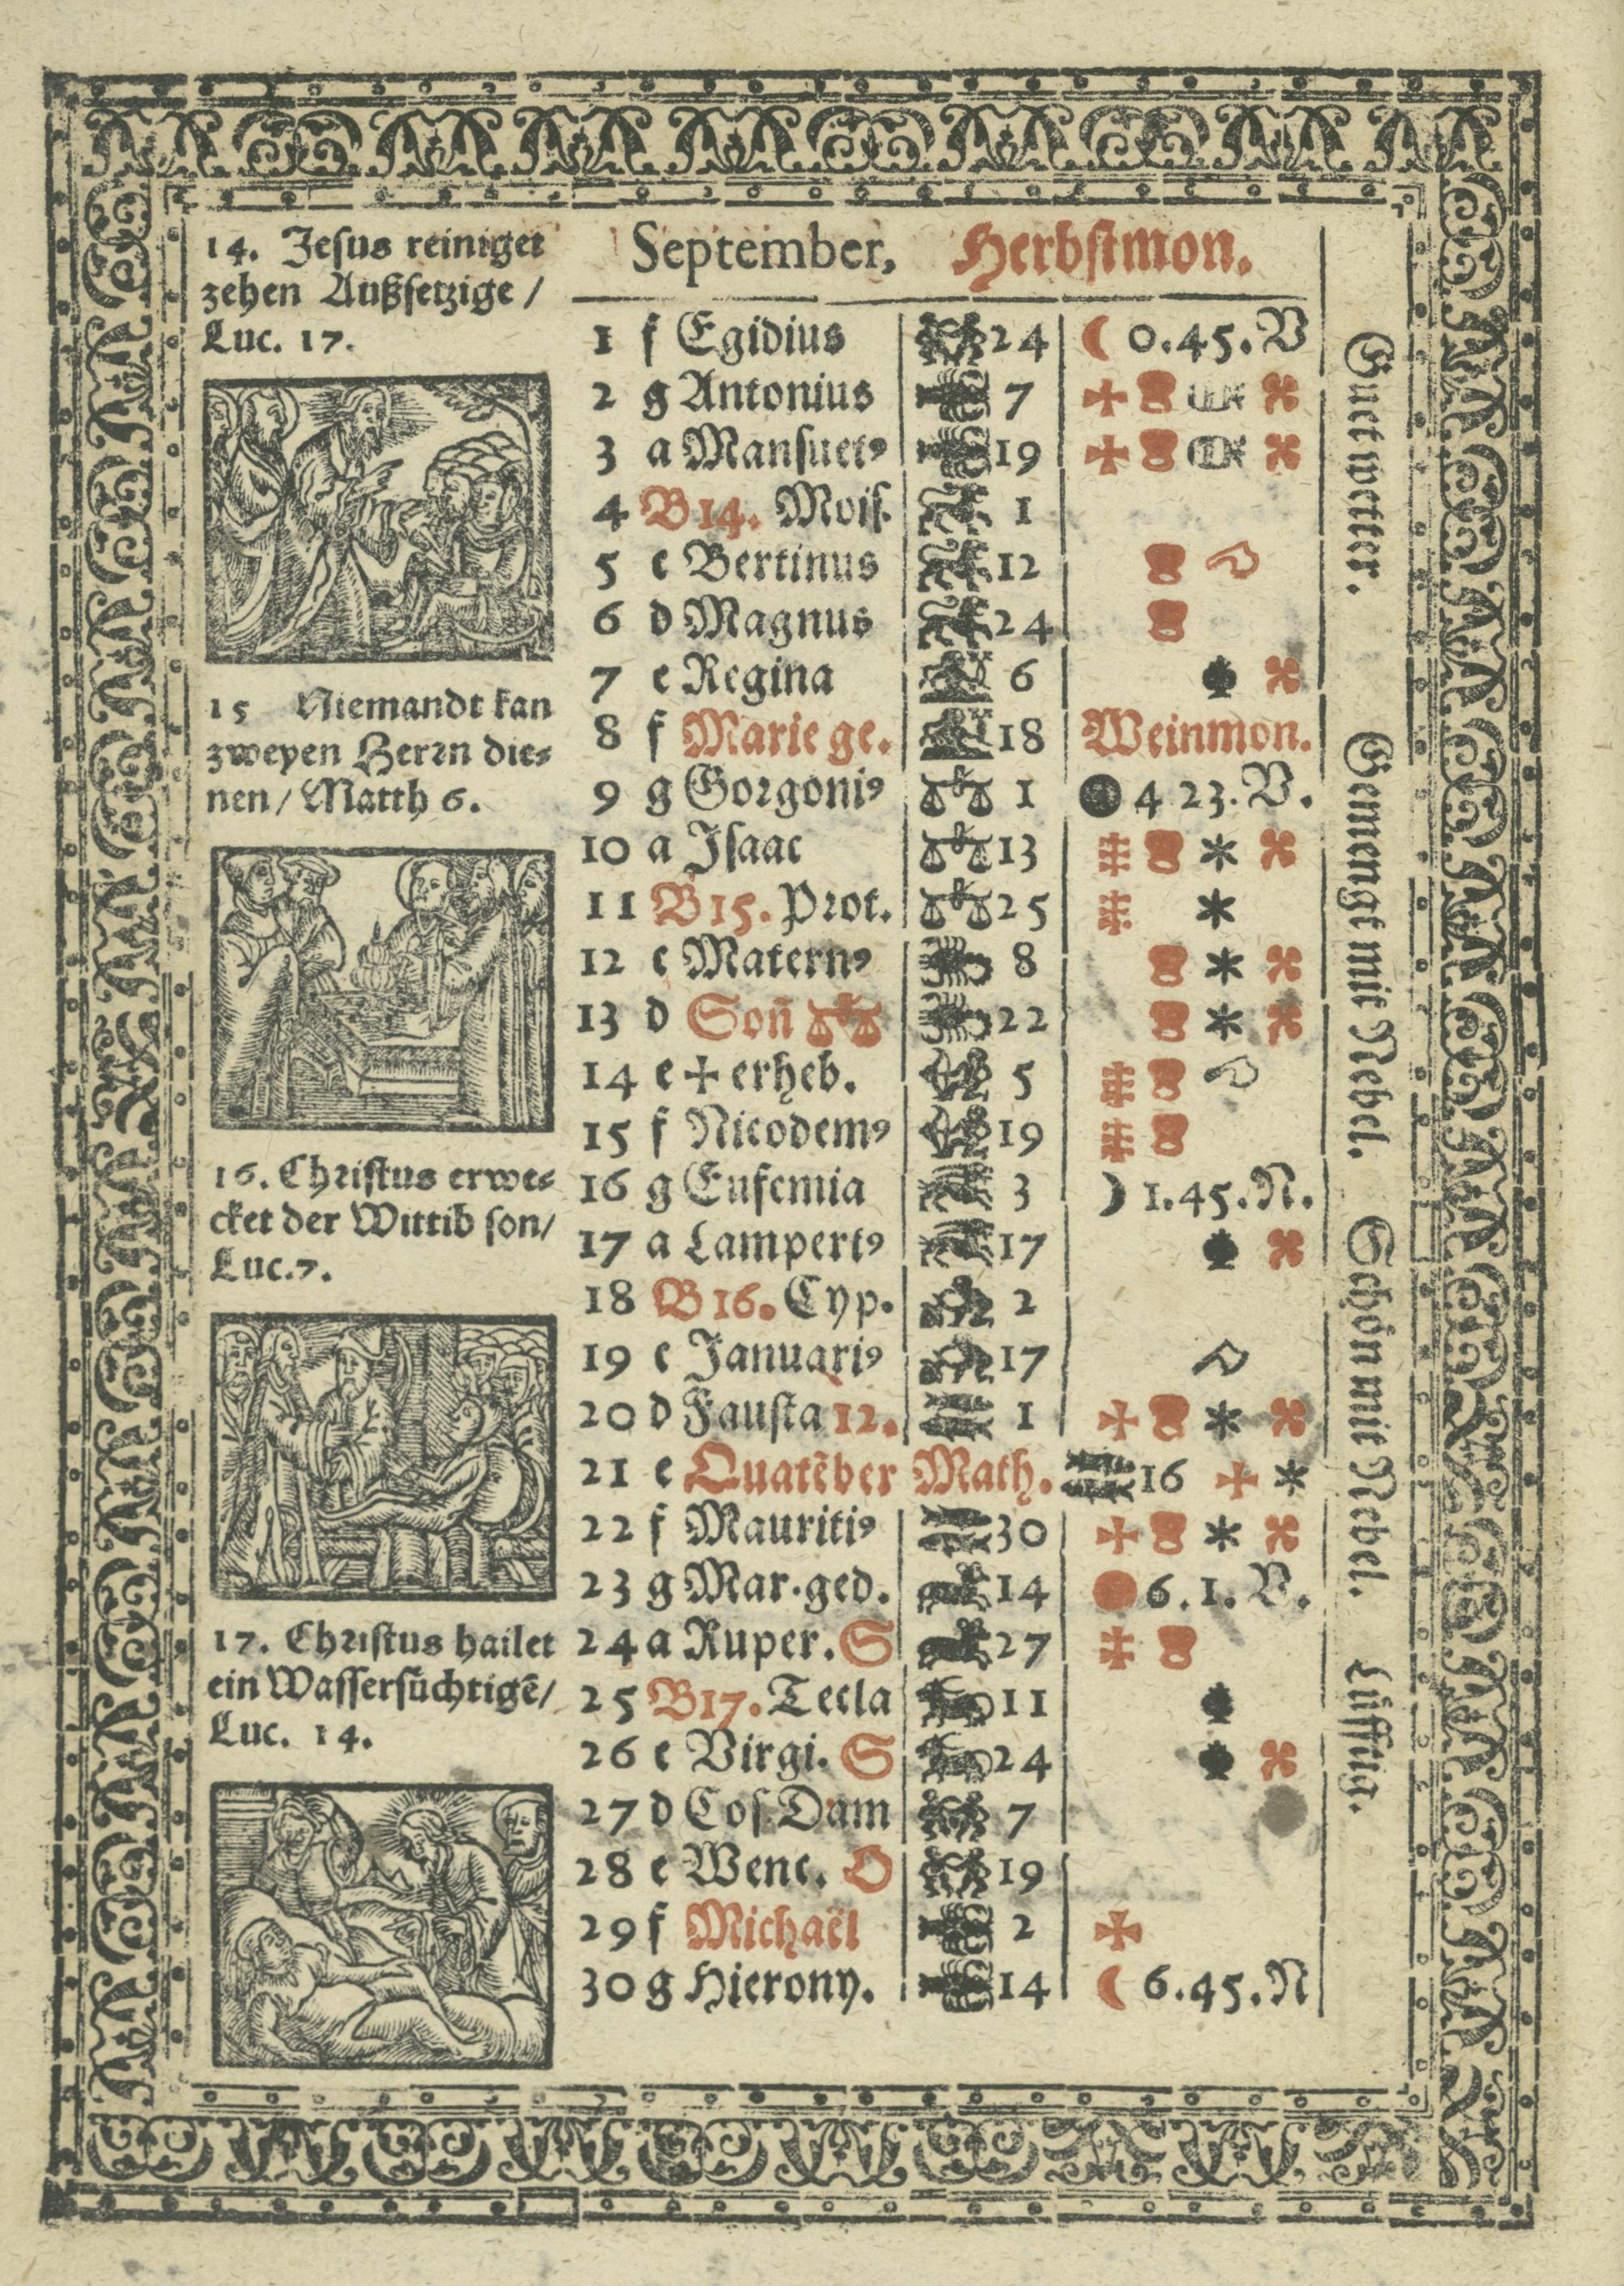 14. Jesus reiniget
zehen Außsetzige /
Luc. 17.
15 Niemandt kan
zweyen Herrn die⸗
nen / Matth 6.
16. Christus erwe⸗
cket der Wittib son /
Luc. 7.
17. Christus hailet
ein Wassersüchtigẽ /
Luc. 14.
September, Herbstmon.
1 f Egidius 24 ☾ 0.45.V
2 g Antonius 7
3 a Mansuetꝰ 19
4 B 14. Mois. 1
5 c Bertinus 12
6 d Magnus 24
7 e Regina 6
8 f Marie ge. 18 Weinmon.
9 g Gorgoniꝰ 1 ● 4 23. V.
10 a Isaac 13
11 B 15. Prot. 25
12 c Maternꝰ 8
13 d Soñ ♎ 22
14 e ✠ erheb. 5
15 f Nicodemꝰ 19
16 g Eufemia 3 ☽ 1.45.N.
17 a Lampertꝰ 17
18 B 16. Cyp. 2
19 c Januariꝰ 17
20 d Fausta 12. 1
21 e Quatẽber Math. 16
22 f Mauritiꝰ 30
23 g Mar. ged. 14 ● 6.1. V.
24 a Ruper. S 27
25 B 17. Tecla 11
26 c Virgi. S 24
27 d Cos. Dam 7
28 e Wenc. O 19
29 f Michaël 2
30 g Hierony. 14 ☾ 6.45.N
Guet wetter. Gemengt mit Nebel. Schön mit Nebel. Lüfftig.